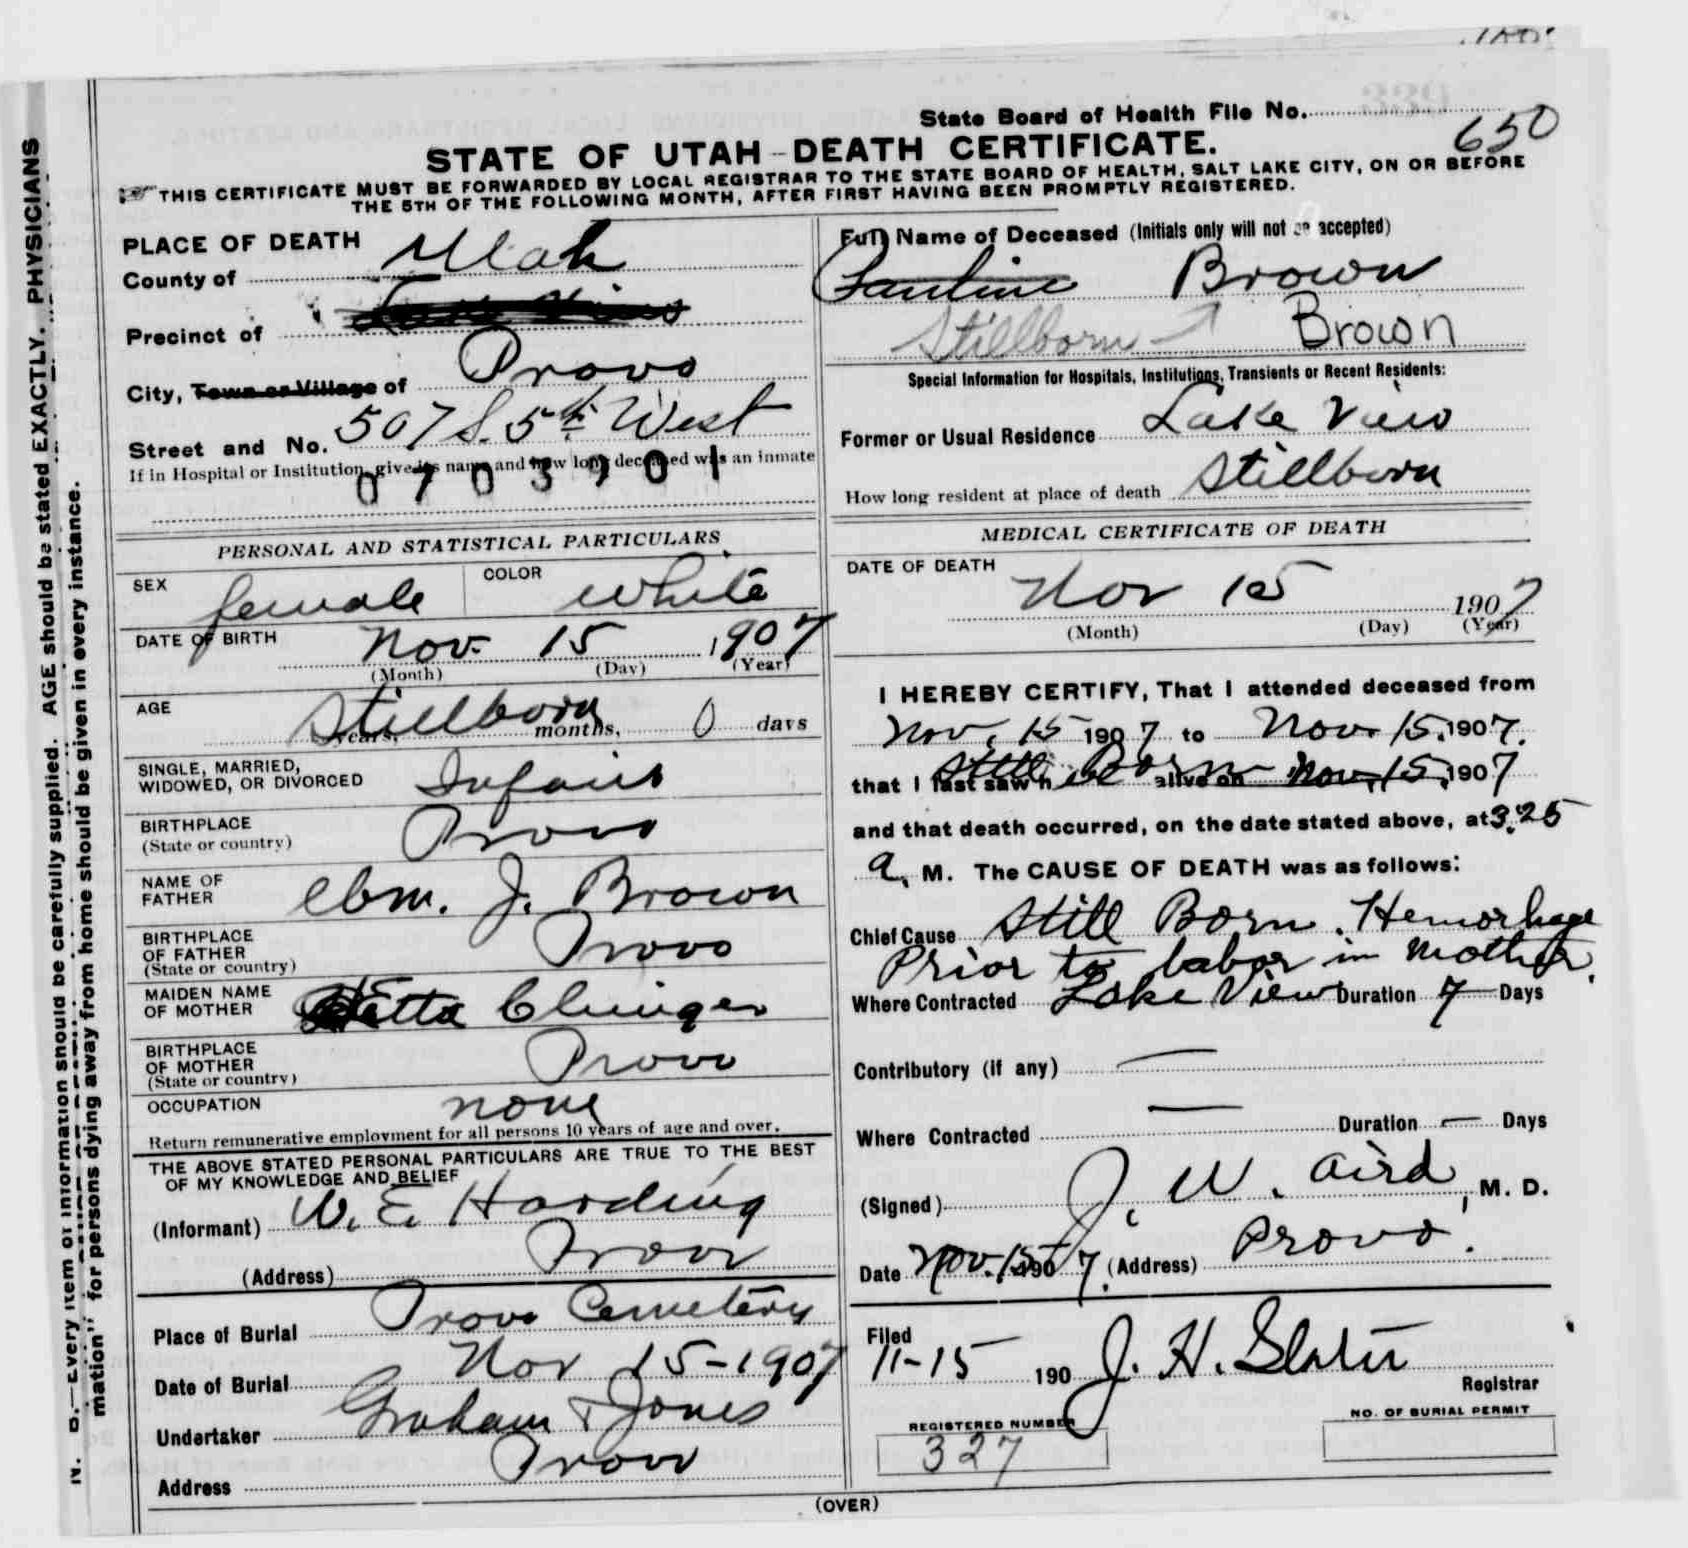 State Board of Health File No.
650
STATE OF UTAH - DEATH CERTIFICATE.
THIS CERTIFICATE MUST BE FORWARDED BY LOCAL REGISTRAR TO THE STATE BOARD OF HEALTH, SALT LAKE CITY, ON OR BEFORE
THE 5TH OF THE FOLLOWING MONTH, AFTER FIRST HAVING BEEN PROMPTLY REGISTERED.
N. B.—Every item of information should be carefully supplied. AGE should be stated EXACTLY. PHYSICIANS
mation" for persons dying away from home should be given in every instance.
PLACE OF DEATH
County of Utah
Precinct of
City, Town or Village of Provo
Street and No. 507 S. 5th West
If in Hospital or Institution, give its name and how long deceased was an inmate
0703901
PERSONAL AND STATISTICAL PARTICULARS
SEX female COLOR white
DATE OF BIRTH Nov. 15 1907
(Month) (Day) (Year)
AGE Stillborn years, months, 0 days
SINGLE, MARRIED,
WIDOWED, OR DIVORCED Infant
BIRTHPLACE
(State or country) Provo
NAME OF
FATHER J. Brown
BIRTHPLACE
OF FATHER
(State or country) Provo
MAIDEN NAME
OF MOTHER Etta Clinger
BIRTHPLACE
OF MOTHER
(State or country) Provo
OCCUPATION none
Return remunerative employment for all persons 10 years of age and over.
THE ABOVE STATED PERSONAL PARTICULARS ARE TRUE TO THE BEST
OF MY KNOWLEDGE AND BELIEF
(Informant) W. E. Harding
(Address) Provo
Place of Burial Provo Cemetery
Date of Burial Nov 15-1907
Undertaker Graham & Jones
Address Provo
Full Name of Deceased (Initials only will not be accepted)
Pauline Brown
Stillborn Brown
Special Information for Hospitals, Institutions, Transients or Recent Residents:
Former or Usual Residence Lake View
How long resident at place of death Stillborn
MEDICAL CERTIFICATE OF DEATH
DATE OF DEATH
Nov 15 1907
(Month) (Day) (Year)
I HEREBY CERTIFY, That I attended deceased from
Nov. 15 1907 to Nov. 15, 1907.
that I last saw h Still Born alive on Nov. 15, 1907
and that death occurred, on the date stated above, at 3.25
a. M. The CAUSE OF DEATH was as follows:
Chief Cause Still Born. Hemorhage
Prior to labor in mother.
Where Contracted Lake View Duration 7 Days
Contributory (if any) —
Where Contracted — Duration — Days
(Signed) J. W. Aird, M. D.
Date Nov. 15 1907. (Address) Provo.
Filed
11-15 190 J. H. Slater
Registrar
REGISTERED NUMBER
327
NO. OF BURIAL PERMIT
(OVER)